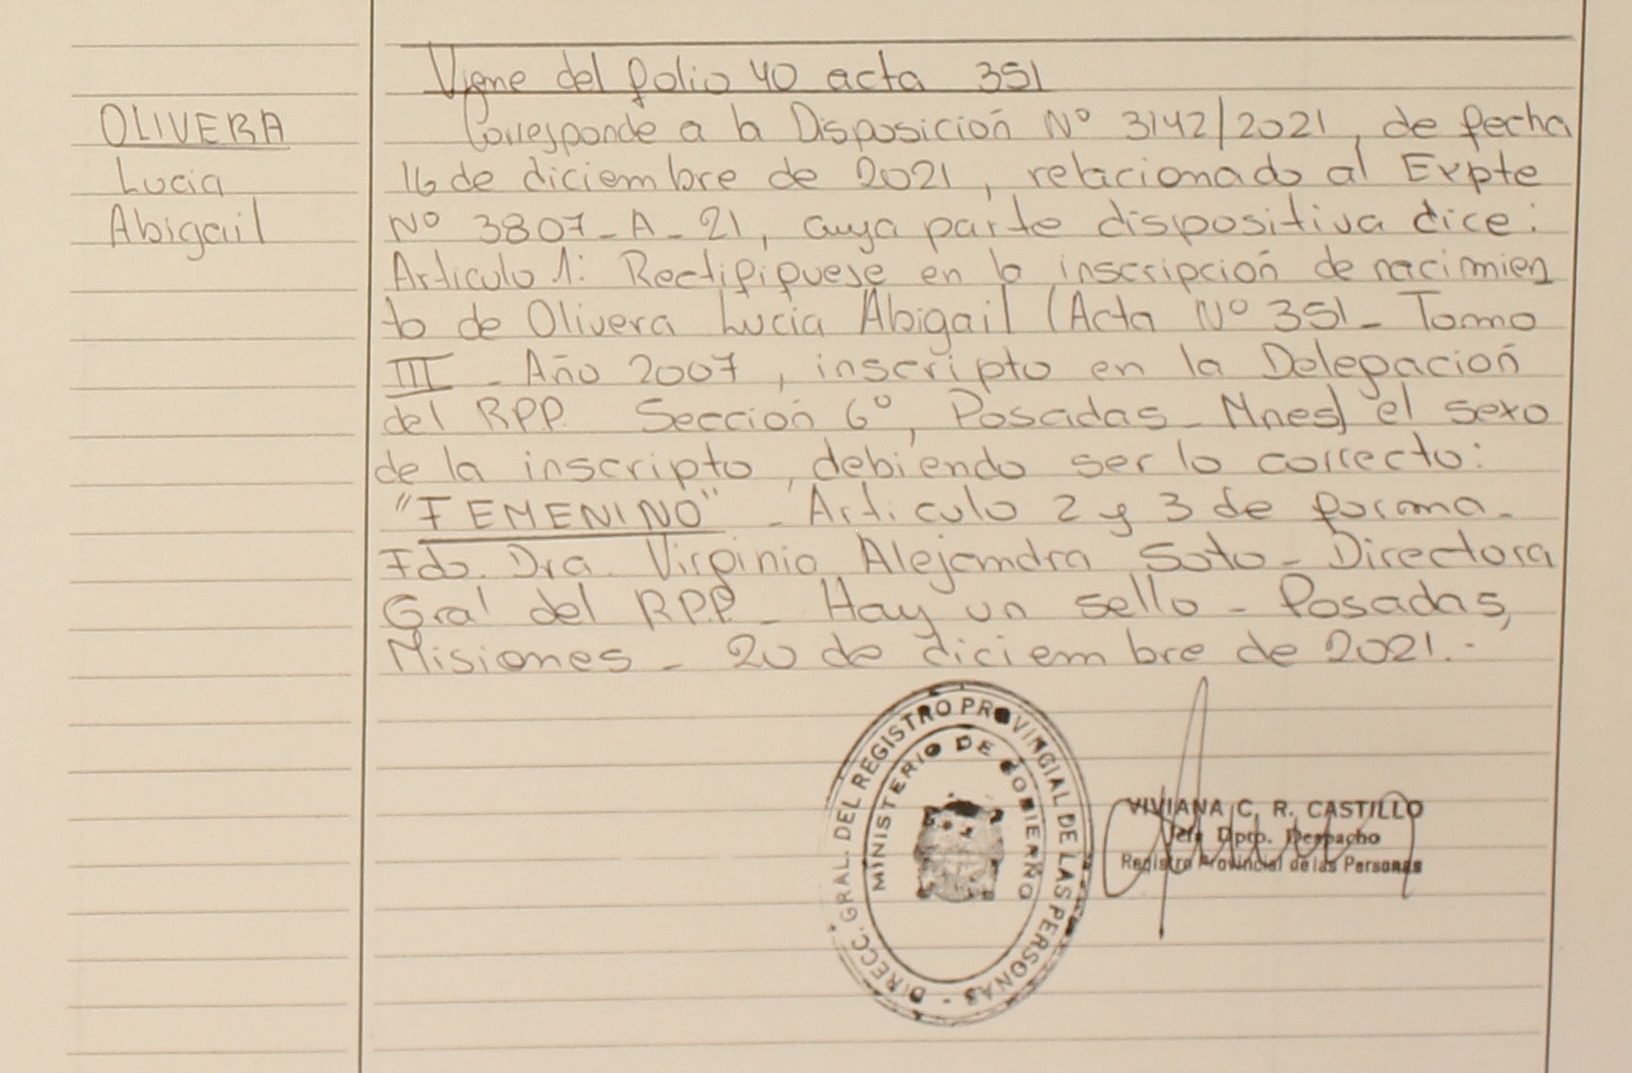 Viene del folio 40 acta 351
OLIVERA
Lucia
Abigail
Corresponde a la Disposición Nº 3142/2021, de fecha
16 de diciembre de 2021, relacionado al Expte
Nº 3807-A-21, cuya parte dispositiva dice:
Articulo 1: Rectifíquese en la inscripción de nacimien
to de Olivera Lucia Abigail (Acta Nº 351 - Tomo
III - Año 2007, inscripto en la Delegación
del RPP. Sección 6º, Posadas - Mnes) el sexo
de la inscripto, debiendo ser lo correcto:
"FEMENINO" - Articulo 2 y 3 de forma -
Fdo. Dra. Virginia Alejandra Soto - Directora
Gral del R.P.P. - Hay un sello - Posadas,
Misiones - 20 de diciembre de 2021.-
DIRECC. GRAL. DEL REGISTRO PROVINCIAL DE LAS PERSONAS -
MINISTERIO DE GOBIERNO
VIVIANA C. R. CASTILLO
Jefa Dpto. Despacho
Registro Provincial de las Personas